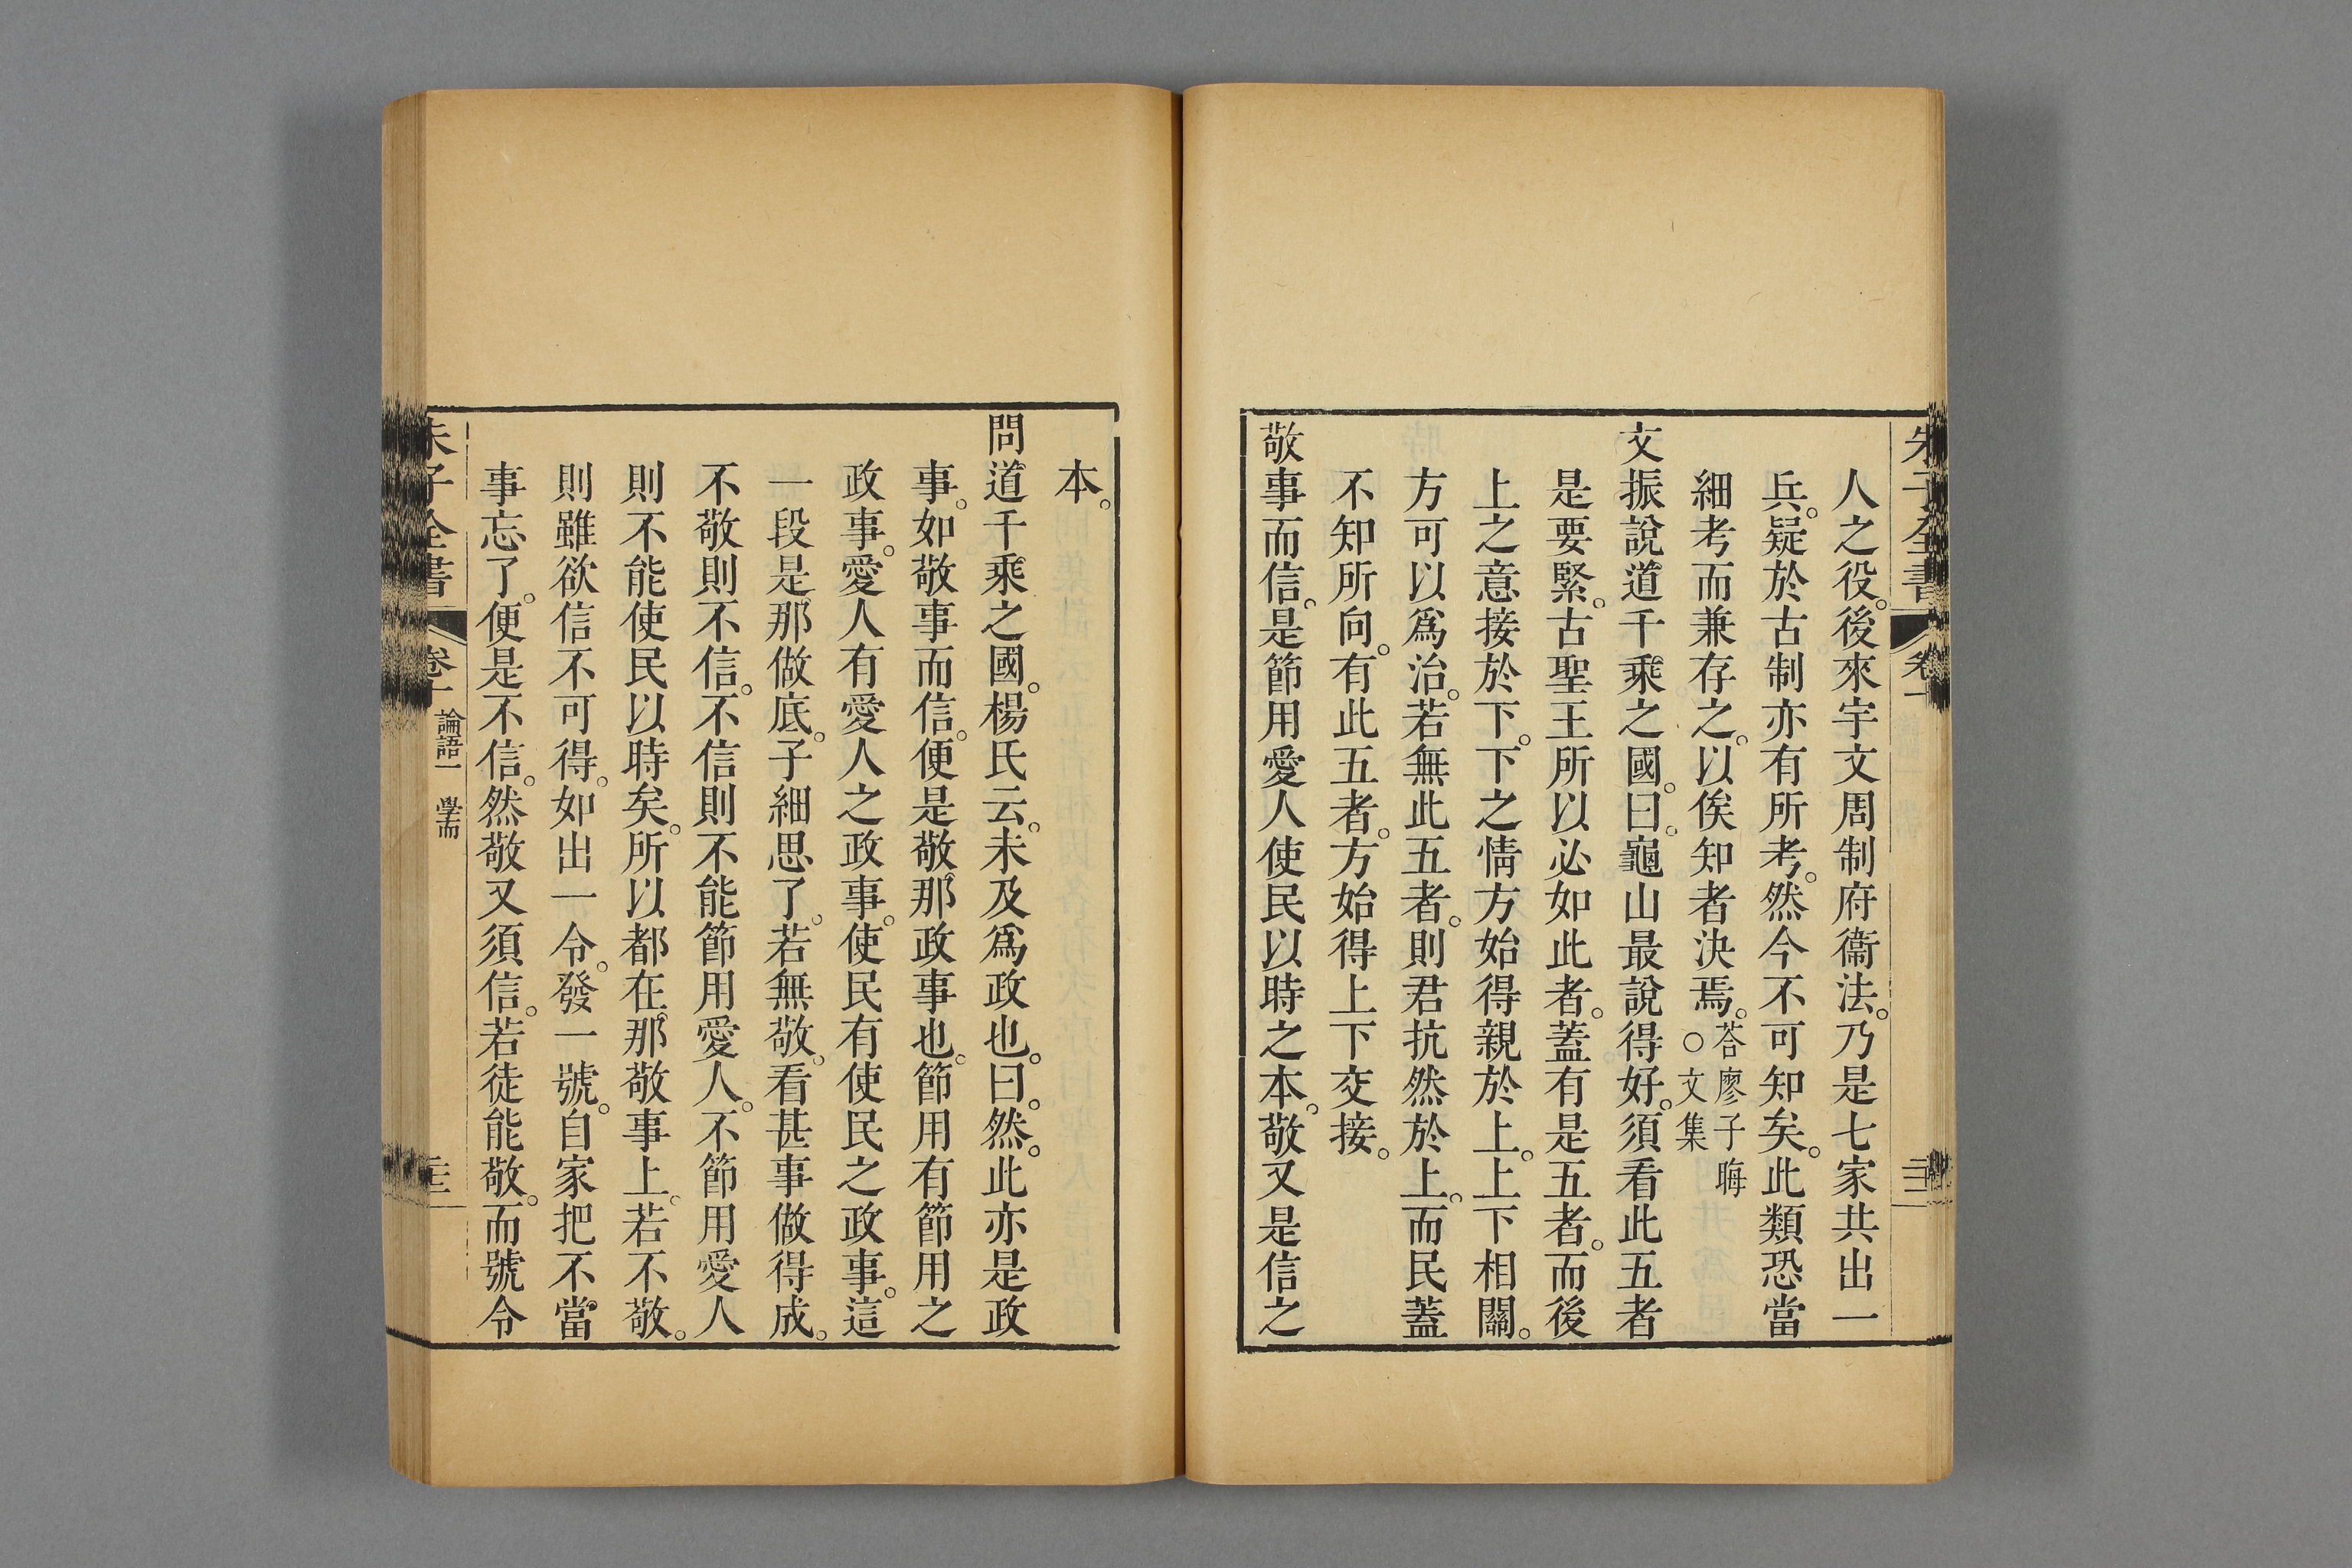 人之役。後來宇文周制府衞法。乃是七家共出一
兵。疑於古制亦有所考。然今不可知矣。此類恐當
細考而兼存之。以俟知者決焉。答廖子晦○文集
文振說道千乘之國。曰。龜山最說得好。須看此五者
是要緊。古聖王所以必如此者。蓋有是五者。而後
上之意接於下。下之情方始得親於上。上下相關。
方可以爲治。若無此五者。則君抗然於上。而民蓋
不知所向。有此五者。方始得上下交接。
敬事而信。是節用愛人使民以時之本。敬又是信之
本。
問道千乘之國。楊氏云。未及爲政也。曰。然。此亦是政
事。如敬事而信。便是敬那政事也。節用有節用之
政事。愛人有愛人之政事。使民有使民之政事。這
一段是那做底。子細思了。若無敬。看甚事做得成。
不敬則不信。不信則不能節用愛人。不節用愛人
則不能使民以時矣。所以都在那敬事上。若不敬。
則雖欲信不可得。如出一令。發一號。自家把不當
事忘了。便是不信。然敬又須信。若徒能敬。而號令
朱子全書 卷十 論語一 學而